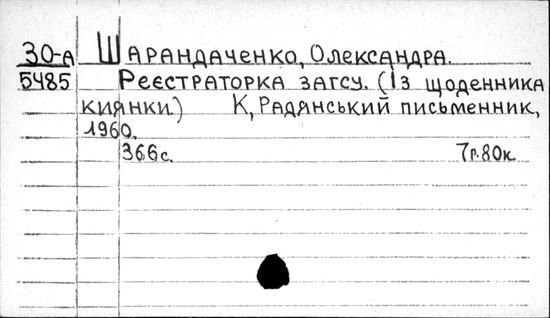 30-А Шарандаченко, Олександра.
5485 Реєстраторка загсу. (Із щоденника
киянки.) К, Радянський письменник,
1960.
366с. 7р.80к.